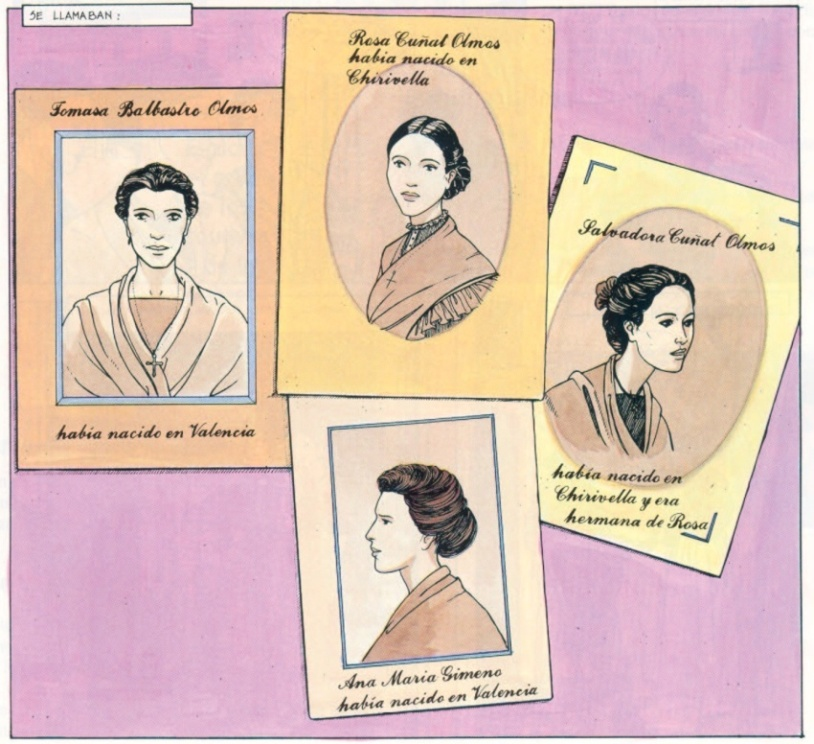 SE LLAMABAN:
Tomasa Balbastre Olmos
había nacido en Valencia
Rosa Cuñat Olmos
había nacido en
Chirivella
Salvadora Cuñat Olmos
había nacido en
Chirivella y era
hermana de Rosa
Ana Maria Gimeno
había nacido en Valencia